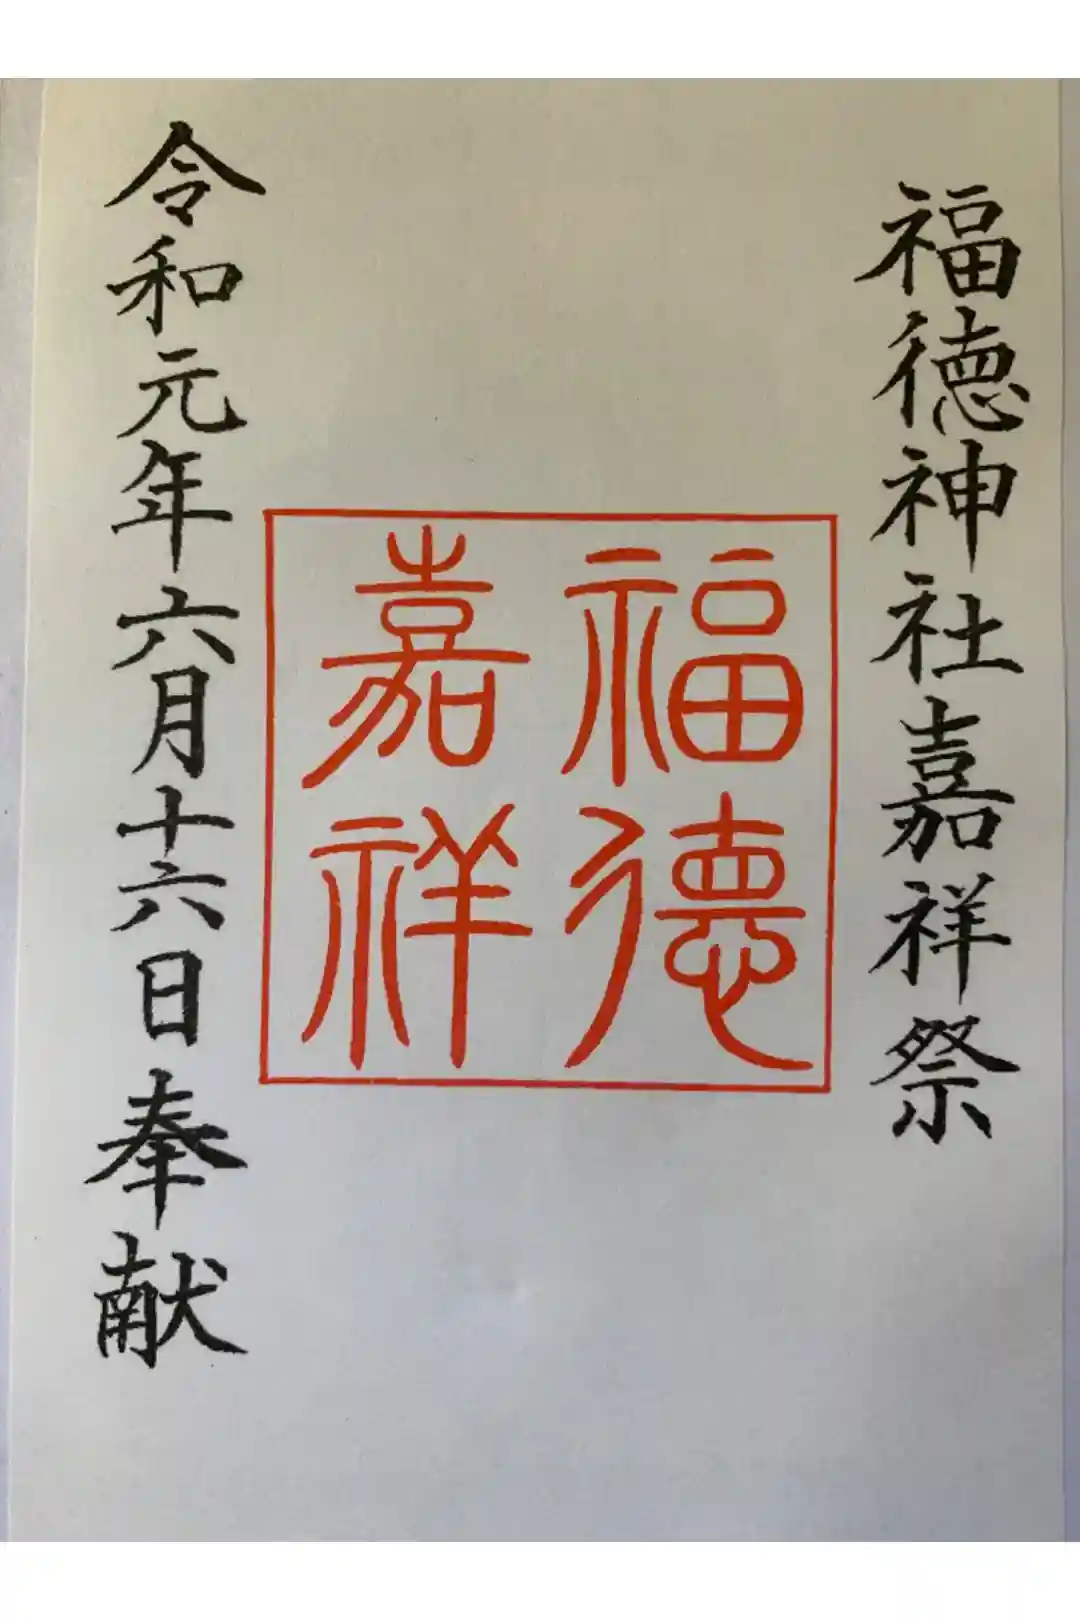 福徳神社嘉祥祭
福徳
嘉祥
令和元年六月十六日奉献